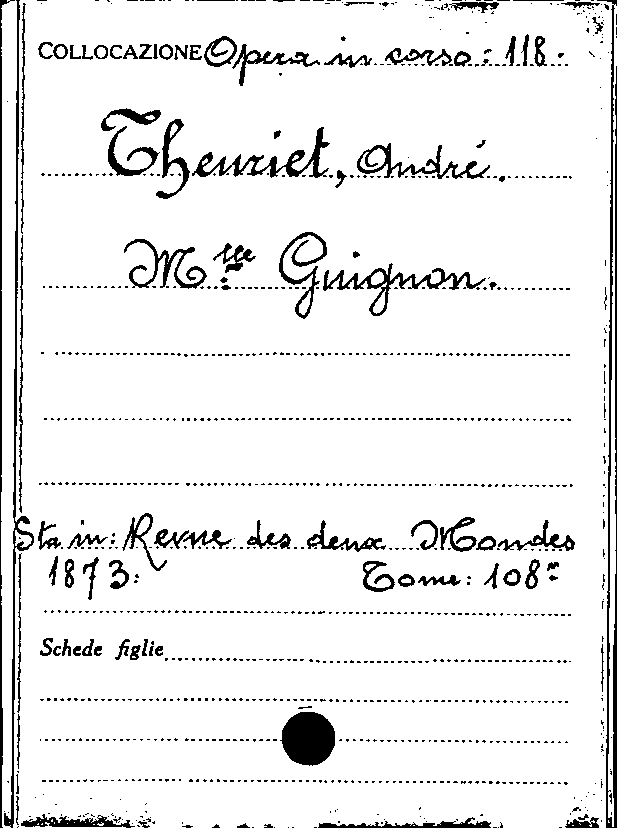 COLLOCAZIONE Opera in corso: 118.
Theuriet, André.
Mlle Guignon.
Sta in: Revue des deux Mondes
1873. Tome: 108º
Schede figlie